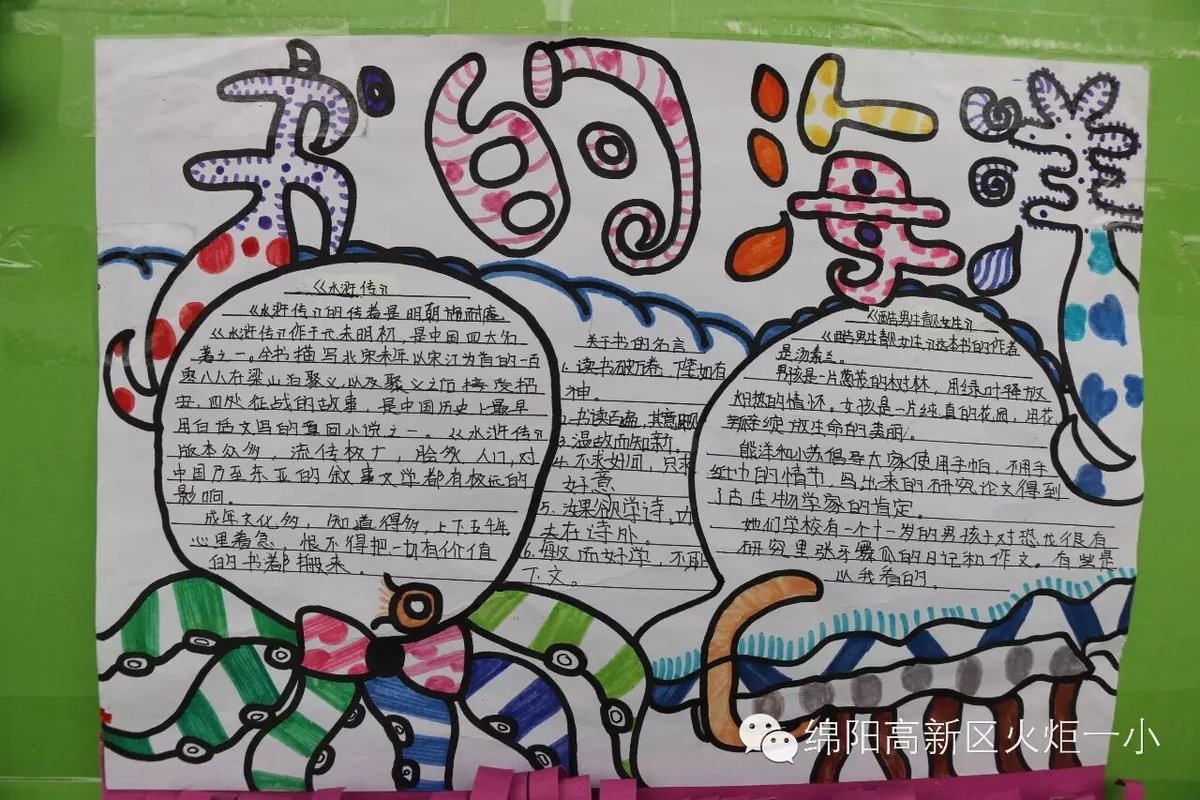 书的海洋
《水浒传》
《水浒传》的传着是明朝施耐庵
《水浒传》作于元末明初，是中国四大名
著之一。全书描写北宋末年以宋江为首的一百
零八人在梁山泊聚义以及聚义之后接受招
安，四处征战的故事，是中国历史上最早
用白话文写的章回小说之一。《水浒传》
版本众多，流传极广，脍炙人们，对
中国乃至东亚的叙事文学都有极远的
影响。
成年文化多，知道得多，上下五千年
心里着急，恨不得把一切有价值
的书都搬来。
关于书的名言
1.读书破万卷，下笔如有
神。
2.书读百遍，其意自现
3.温故而知新，
4.不求好问，只求
好意
5.如果欲学诗，功
夫在诗外。
6.敏而好学，不耻
下文。
《酷男生靓女生》
《酷男生靓女生》这本书的作者
是汤素兰。
男孩是一片葱茏的树林，用绿叶释放
炽热的情怀。女孩是一片纯真的花园，用花
绽放生命的美丽。
熊洋和小苏倡导大家使用手帕，不用手
纸巾的情节，写出来的研究论文得到
了古生物学家的肯定。
她们学校有一个十一岁的男孩子对恐龙很有
研究里张牙舞爪的日记和作文。有些是
以我看的。
绵阳高新区火炬一小